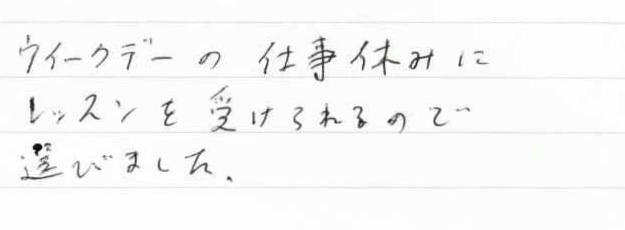 ウイークデーの仕事休みに
レッスンを受けられるので
選びました。